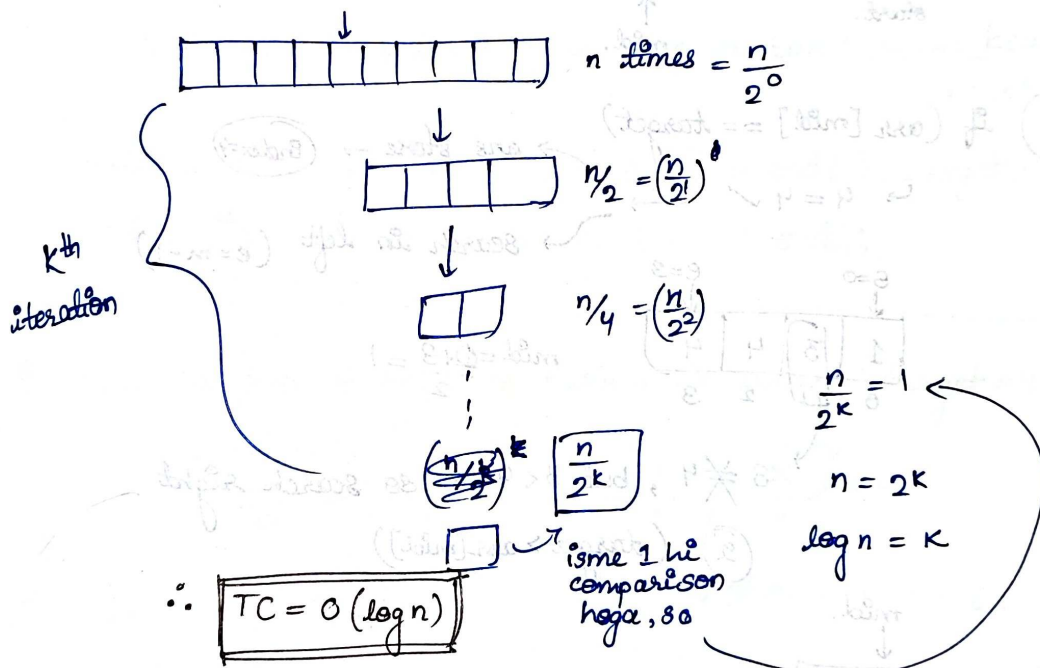 n times = n/2^0
n/2 = (n/2^1)
n/4 = (n/2^2)
Kth
iteration
n/2^k = 1
n/2^k
n = 2^k
log n = K
isme 1 hi
comparison
hoga, so
∴ TC = O(log n)